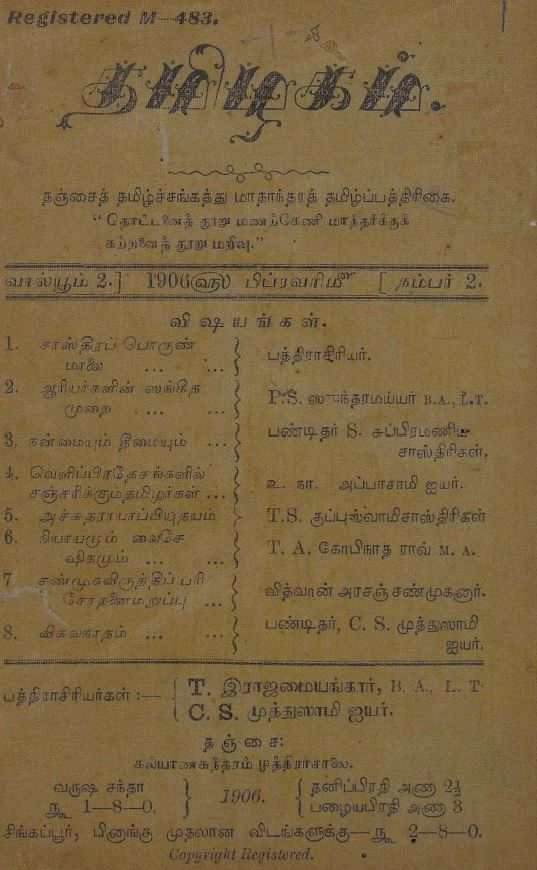 Registered M—483.
தமிழகம்.
தஞ்சைத் தமிழ்ச்சங்கத்து மாதாந்தரத் தமிழ்ப்பத்திரிகை.
“தொட்டனைத் தூறு மணற்கேணி மாந்தர்க்குக்
கற்றனைத் தூறு மறிவு.”
வால்யூம் 2.] 1906௵ பிப்ரவரி௴ [நம்பர் 2.
விஷயங்கள்.
1. சாஸ்திரப் பொருண் மாலை ... ... } பத்திராசிரியர்.
2. ஆரியர்களின் ஸங்கீத முறை ... ... } P.S. ஸுந்தரமய்யர் B.A., L.T.
3. நன்மையும் தீமையும் ... } பண்டிதர் S. சுப்பிரமணிய சாஸ்திரிகள்.
4. வெளிப்பிரதேசங்களில் சஞ்சரிக்கும்தமிழர்கள் ... } உ. நா. அப்பாசாமி ஐயர்.
5. அச்சுதராயாப்பியுதயம் } T.S. குப்புஸ்வாமிசாஸ்திரிகள்
6. நியாயமும் வைசே ஷிகமும் ... ... } T. A. கோபிநாத ராவ் M. A.
7 சண்முகவிருத்திப் பரி சோதனைமறுப்பு ... } வித்வான் அரசஞ்சண்முகனார்.
8. விசுவநாதம் ... ... } பண்டிதர், C. S. முத்துஸாமி ஐயர்.
பத்திராசிரியர்கள் :— { T. இராஜமையங்கார், B. A., L. T.
C. S. முத்துஸாமி ஐயர்.
தஞ்சை:
கல்யாணசுந்தரம் முத்திராசாலை.
வருஷ சந்தா ரூ 1—8—0. } 1906. { தனிப்பிரதி அணா 2½
பழையபிரதி அணா 3
சிங்கப்பூர், பினாங்கு முதலான விடங்களுக்கு—ரூ 2—8—0.
Copyright Registered.